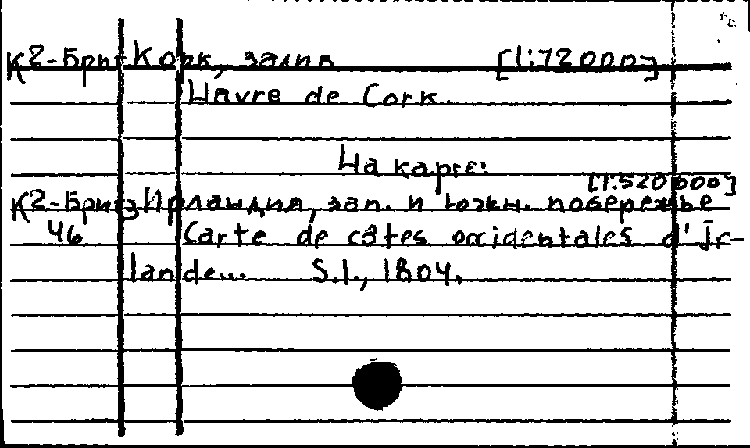 К2-Брит Корк, залив [1:72000]
Havre de Cork.
На карте:
[1:520 000]
К2-Брит Ирландия, зап. и южн. побережье
46 Carte de côtes occidentales d'Ir-
lande... S.l., 1804.